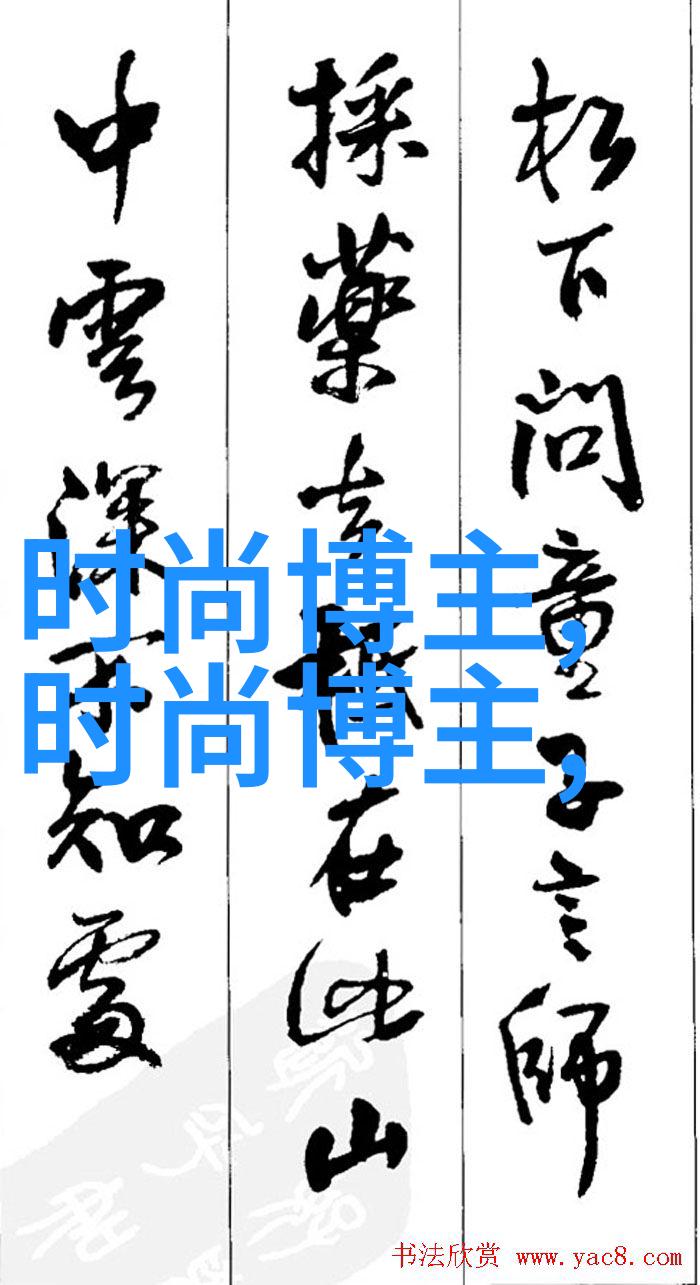 松下问童子言師
採藥去在此山
中雲深不知處
时尚博主,
时尚博主,
书法欣赏 www.yac8.com